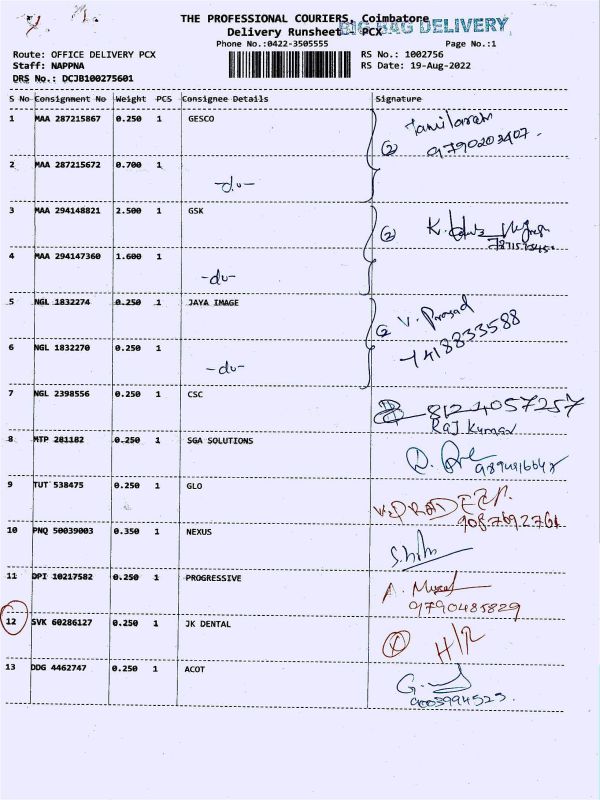 THE PROFESSIONAL COURIERS, Coimbatore
BIG BAG DELIVERY
Delivery Runsheet - PCX
Phone No.:0422-3505555 Page No.:1
Route: OFFICE DELIVERY PCX RS No.: 1002756
Staff: NAPPNA RS Date: 19-Aug-2022
DRS No.: DCJB100275601
S No Consignment No Weight PCS Consignee Details Signature
1 MAA 287215867 0.250 1 GESCO
9790203407
2 MAA 287215672 0.700 1 -do-
3 MAA 294148821 2.500 1 GSK 2 K.
4 MAA 294147360 1.600 1 -do-
5 NGL 1832274 0.250 1 JAYA IMAGE 2 V. Prasad
7418833588
6 NGL 1832270 0.250 1 -do-
7 NGL 2398556 0.250 1 CSC 8124057257
Raj Kumar
8 MTP 281182 0.250 1 SGA SOLUTIONS
9 TUT 538475 0.250 1 GLO PRADEEP.
908.769.2761
10 PNQ 50039003 0.350 1 NEXUS
11 DPI 10217582 0.250 1 PROGRESSIVE A.
9790485829
12 SVK 60286127 0.250 1 JK DENTAL X H/R
13 DDG 4462747 0.250 1 ACOT G.
9003994523.